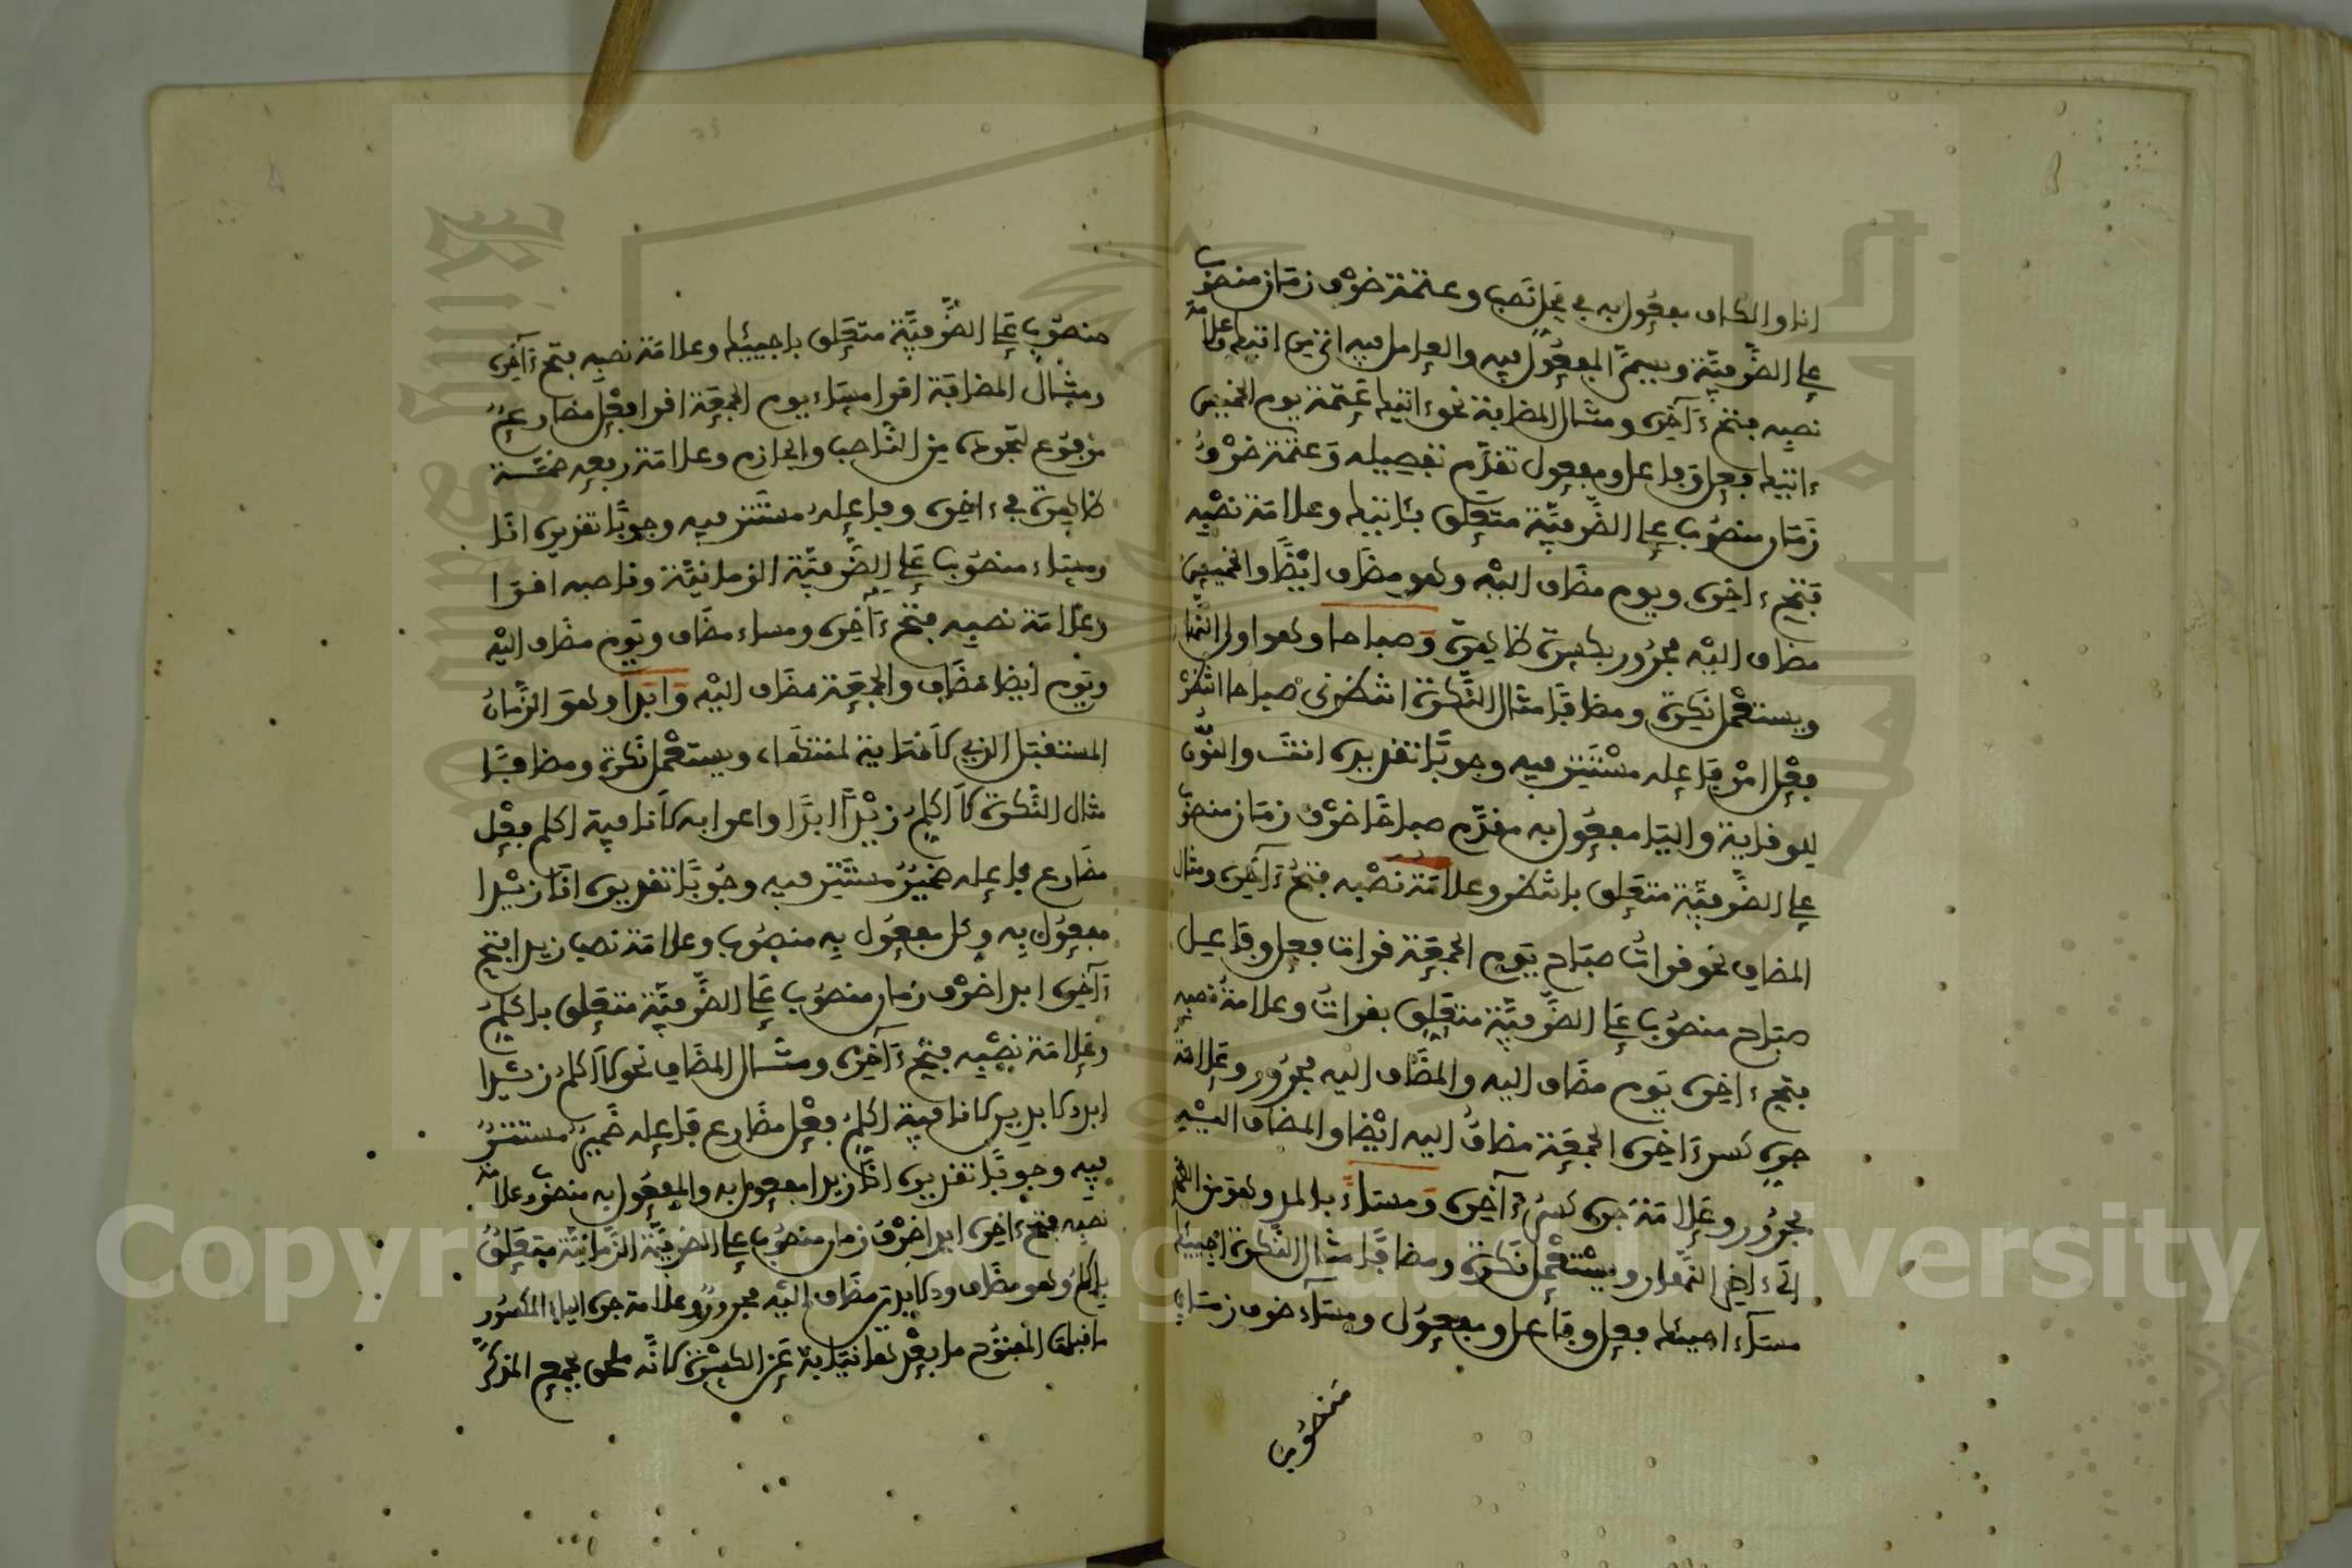 انا والكاف مفعول به في محل نصب وعتمة ظرف زمان منصوب
على الظرفية ويسمى المفعول فيه والعامل فيه اتيك وعلامة
نصبه فتح ءاخره ومثال المضافة نحو ءاتيك عتمة يوم الخميس
ءاتيك فعل وفاعل ومفعول تقدم تفصيله وعتمة ظرف
زمان منصوب على الظرفية متعلق بئاتيك وعلامة نصبه
فتح ءاخره ويوم مضاف اليه وهو مضاف ايضا والخميس
مضاف اليه مجرور بكسرة ظاهرة وصباحا وهو اول النهار
ويستعمل نكرة ومضافا مثال النكرة انتظرني صباحا انتظر
فعل امر فاعله مستتر فيه وجوبا تقديره انت والنون
للوقاية واليا مفعول به مقدم صباحا ظرف زمان منصوب
على الظرفية متعلق بانتظر وعلامة نصبه فتح ءاخره ومثال
المضاف نحو قرات صباح يوم الجمعة قرات فعل وفاعل
صباح منصوب على الظرفية متعلق بقرات وعلامة نصبه
فتح ءاخره يوم مضاف اليه والمضاف اليه مجرور وعلامة
جره كسر ءاخره الجمعة مضاف اليه ايضا والمضاف اليه
مجرور وعلامة جره كسر ءاخره ومساء بالمد وهو من الظهر
الى ءاخر النهار ويستعمل نكرة ومضافا مثال النكرة اجيئك
مساء اجيئك فعل وفاعل ومفعول ومساء ظرف زمان
منصوب
منصوب على الظرفية متعلق باجيئك وعلامة نصبه فتح ءاخره
ومثال المضافة اقرا مساء يوم الجمعة اقرا فعل مضارع
مرفوع لتجرده من الناصب والجازم وعلامة رفعه ضمة
ظاهرة في ءاخره وفاعله مستتر فيه وجوبا تقديره انا
ومساء منصوب على الظرفية الزمانية وناصبه اقرا
وعلامة نصبه فتح ءاخره ومساء مضاف ويوم مضاف اليه
ويوم ايضا مضاف والجمعة مضاف اليه وابدا وهو الزمان
المستقبل الذي لا نهاية لمنتهاه ويستعمل نكرة ومضافا
مثال النكرة لا اكلم زيدا ابدا واعرابه لا نافية اكلم فعل
مضارع فاعله ضمير مستتر فيه وجوبا تقديره انا زيدا
مفعول به وكل مفعول به منصوب وعلامة نصب زيدا فتح
ءاخره ابدا ظرف زمان منصوب على الظرفية متعلق باكلم
وعلامة نصبه فتح ءاخره ومثال المضاف نحو لا اكلم زيدا
ابد الابدين لا نافية اكلم فعل مضارع فاعله ضمير مستتر
فيه وجوبا تقديره انا زيدا مفعول به والمفعول به منصوب وعلامة
نصبه فتح ءاخره ابد ظرف زمان منصوب على الظرفية الزمانية متعلق
باكلم وهو مضاف والابدين مضاف اليه مجرور وعلامة جره الياء المكسور
ما قبلها المفتوح ما بعدها نيابة عن الكسرة لانه ملحق بجمع المذكر